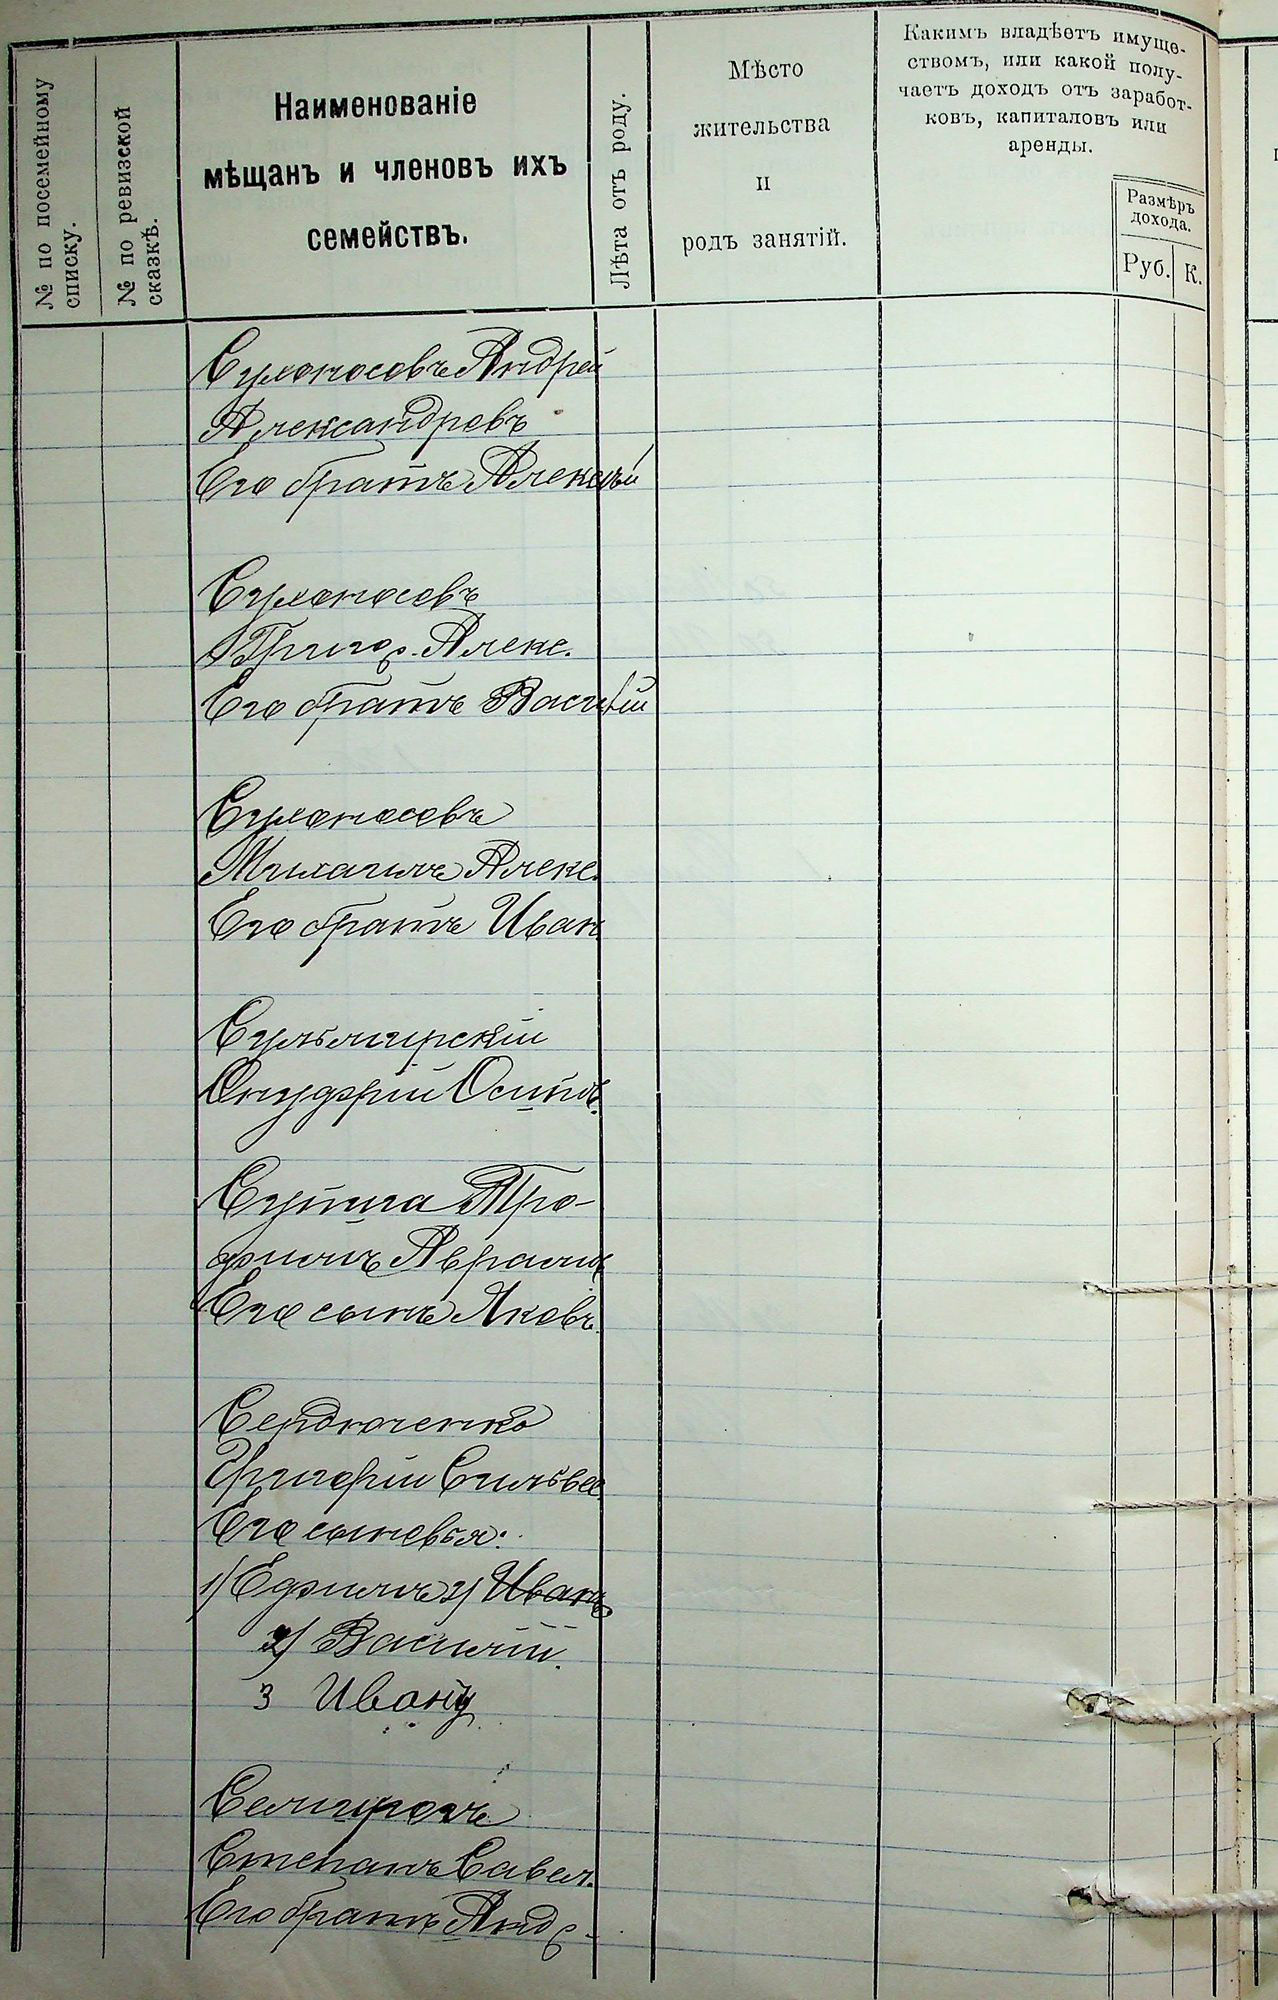 № по посемейному
списку.
№ по ревизской
сказкѣ.
Наименованіе
мѣщанъ и членовъ ихъ
семействъ.
Лѣта отъ роду.
Мѣсто
жительства
и
родъ занятій.
Какимъ владѣетъ имуще-
ствомъ, или какой полу-
чаетъ доходъ отъ заработ-
ковъ, капиталовъ или
аренды.
Размѣръ
дохода.
Руб.
К.
Сухоносовъ Андрей
Александровъ
Его братъ Алексѣй
Сухоносовъ
Григор. Алекс.
Его братъ Василій
Сухоносовъ
Михаилъ Алекс.
Его братъ Иван
Сульмирскій
Онуфрій Осипов.
Супига Тро-
фимъ Аврамов
Его сынъ Яковъ
Сердюченко
Григорій Сильвес.
Его сыновья:
1) Ефимъ 2) Иванъ
2) Василій.
3 Иванъ
Степанъ Савел.
Его братъ Андр.